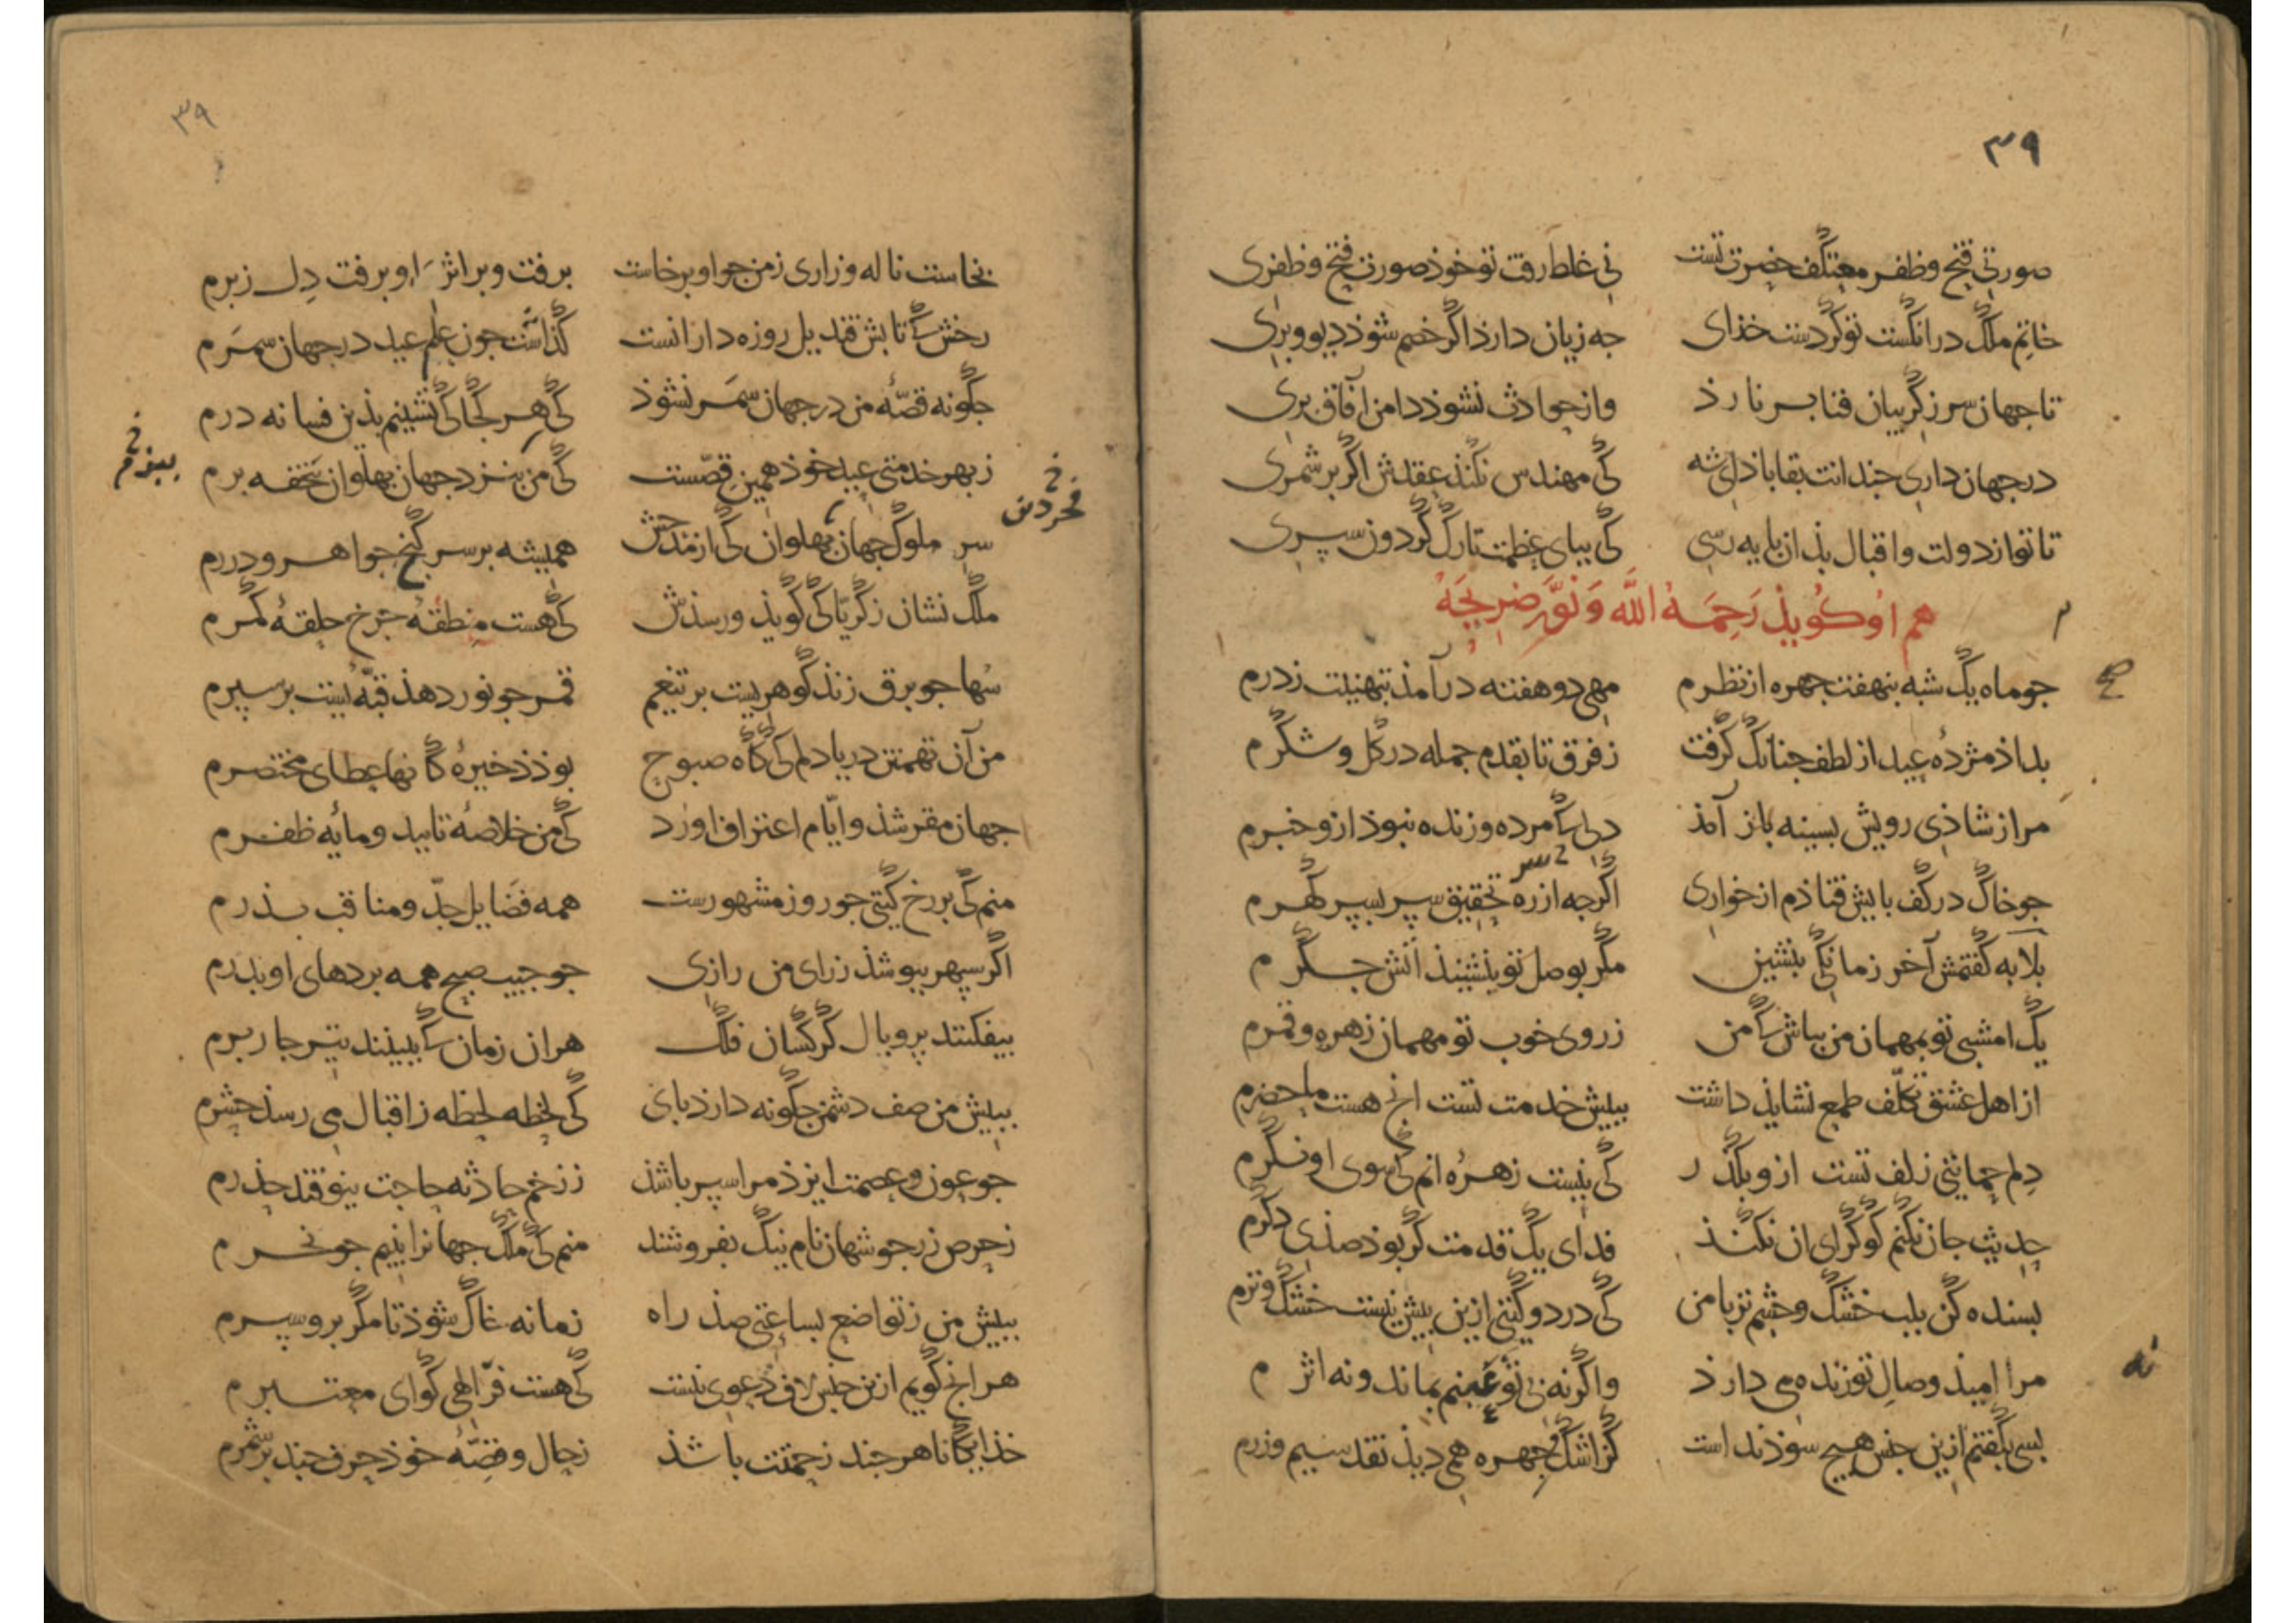 ۳۹
صورتی فتح و ظفر معتکف حضرت تست نی غلط رفت تو خوذ صورت فتح و ظفری
خاتم ملک در انکست تو کردست خذای جه زیان دارذ اکر خصم شوذ دیو و بری
تا جهان سر ز کریبان فنا بر نارذ واز حوادث نشوذ دامن آفاق بری
در جهان داری جندانت بقا باذ ای شه کی مهندس نکنذ عقدش اکر بر شمری
تا تو از دولت و اقبال بذان بایه رسی کی ببای عظمت تارک کردون سپری
هم او کویذ رحمه الله و نور ضریحه
جو ماه یک شبه بنهفت جهره از نظرم مهی دو هفته در آمذ بتهنیت ز درم
بداذ مژده عید از لطف جنانک کرفت ز فرق تا بقدم جمله در کل و شکرم
مرا ز شاذی رویش بسینه باز آمذ دلی که مرده و زنده نبوذ ازو خبرم
جو خاک در کف بایش فتاذم از خواری اکرجه از ره تحقیق سر بسپر کهرم
بلابه کفتمش آخر زمانکی بنشین مکر بوصل تو بنشینذ آتش جکرم
یک امشبی تو بمهمان من بباش کی من ز روی خوب تو مهمان زهره و قمرم
از اهل عشق تکلف طمع نشایذ داشت ببیش خدمت تست انج هست ماحضرم
دلم حمایتی زلف تست ازو بکذر کی نیست زهره انم کی سوی او نکرم
حدیث جان نکنم کو کرای ان نکنذ فدای یک قدمت کر بوذ صذی دکرم
بسنده کن بلب خشک و جشم تر با من کی در دو کیتی ازین بیش نیست خشک و ترم
مرا امیذ وصال تو زنده می دارذ و اکرنه بی تو عینم بماند و نه اثرم
بسی بکفتم ازین جنس هیچ سوذ نداست کز اشک و جهره همی دیذ نقد سیم و زرم
۳۹
بخاست ناله و زاری ز من جو او برخاست برفت و بر اثر او برفت دل ز برم
رخش که تابش قندیل روزه دارانست کذاشت جون علم عید در جهان سمرم
جکونه قصه من در جهان سمر نشوذ کی هر کجا کی نشینم بذین فسانه درم
ز بهر خدمتی عید خوذ همین قصست کی من بنزد جهان بهلوان تحفه برم
سر ملوک جهان بهلوان کی از مدحش همیشه بر سر کنج جواهر و دررم
ملک نشان زکریا کی کویذ ورسذش کی هست منطقه جرخ حلقه کمرم
سها جو برق زند کوهریست بر تیغم قمر جو نور دهذ قبه ئیست بر سپرم
من آن تهمتن دریا دلم کی کاه صبوح بوذ ذخیره کانها عطای مختصرم
جهان مقر شذ و ایام اعتراف اورد کی من خلاصه تایید و مایه ظفرم
منم کی بر رخ کیتی جو روز مشهورست همه فضایل جد و مناقب بذرم
اکر سپهر ببوشذ ز رای من رازی جو جیب صبح همه بردهای او بدرم
بیفکنند پر و بال کرکسان فلک هر ان زمان که ببینند تیر جار برم
ببیش من صف دشمن جکونه دارذ بای کی لحظه لحظه ز اقبال می رسذ حشرم
جو عون و عصمت ایزذ مرا سپر باشذ ز زخم حادثه حاجت نیوفتد حذرم
ز حرص زر جو شهان نام نیک بفروشند منم کی ملک جهانرا بنیم جو نخرم
ببیش من ز تواضع بساعتی صذ راه زمانه خاک شوذ تا مکر برو سپرم
هر انج کویم ازین جنس لاف دعوی نیست کی هست فر الهی کوای معتبرم
خذایکانا هر جند زحمتت باشذ ز حال و قصه خوذ حرف جند بر شمرم